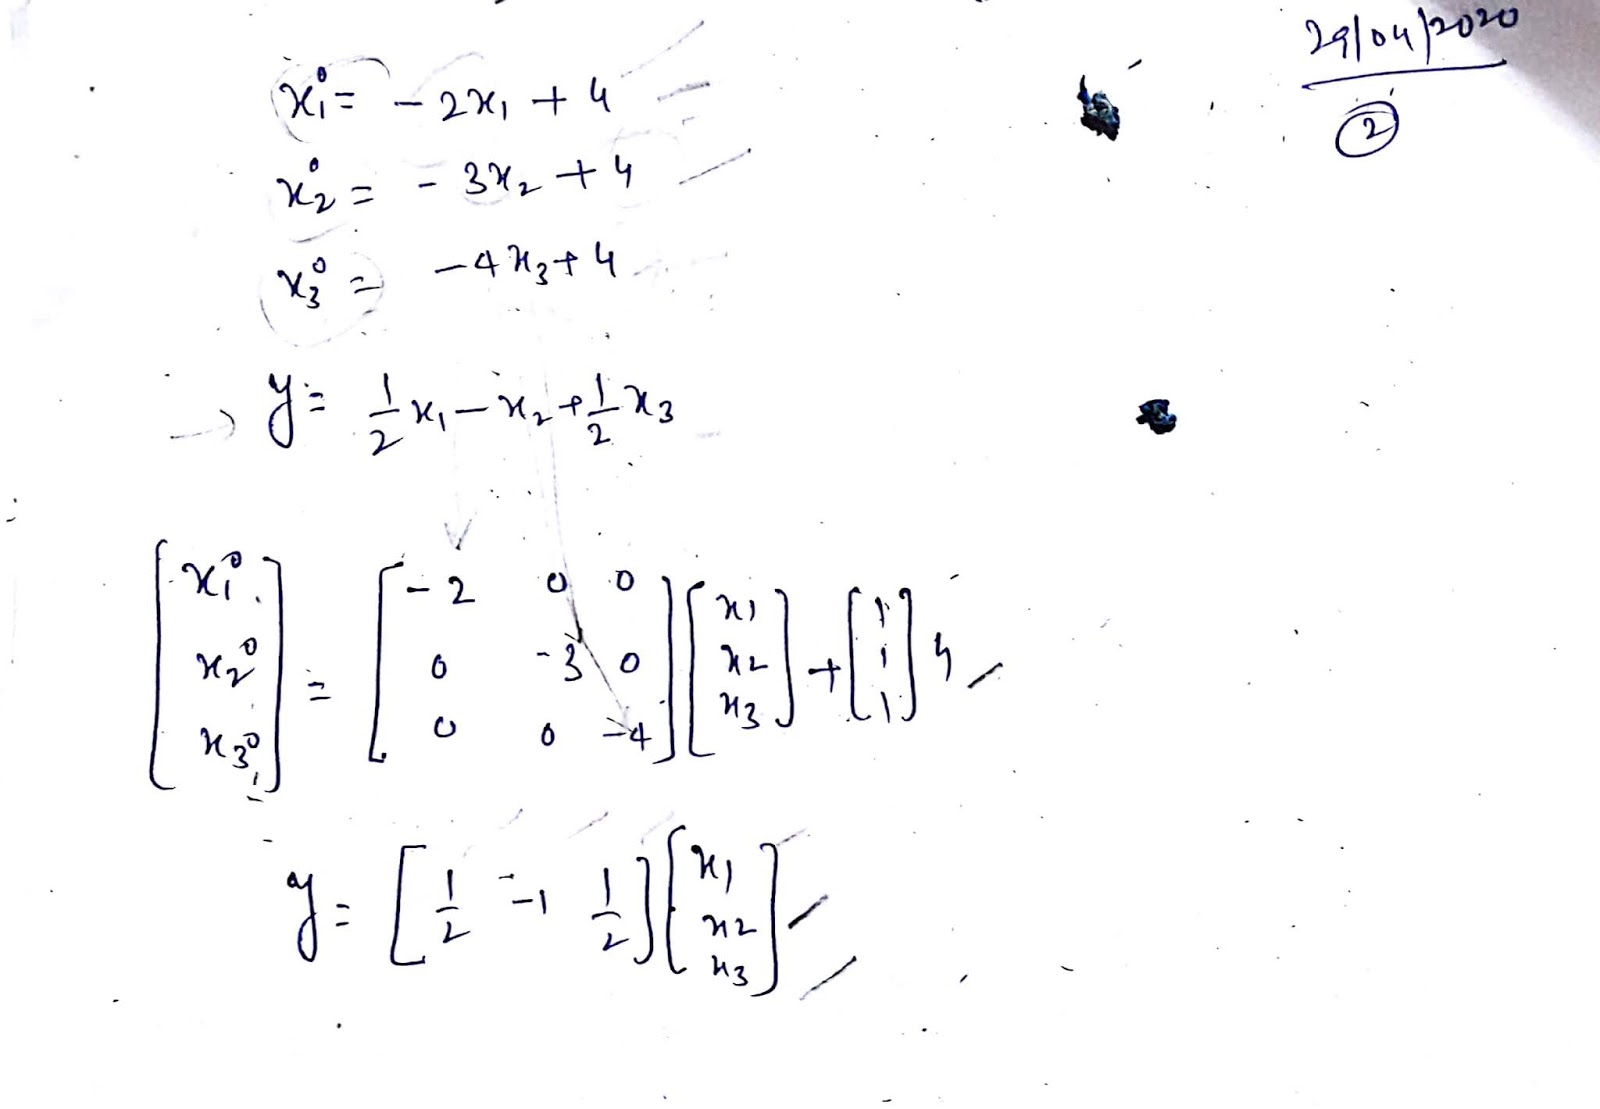 29/04/2020
2
ẋ₁ = - 2x₁ + 4
ẋ₂ = - 3x₂ + 4
ẋ₃ = - 4x₃ + 4
→ y = 1/2 x₁ - x₂ + 1/2 x₃
[ẋ₁ ẋ₂ ẋ₃] = [-2 0 0; 0 -3 0; 0 0 -4] [x₁ x₂ x₃] + [1 1 1] 4
y = [1/2 -1 1/2] [x₁ x₂ x₃]